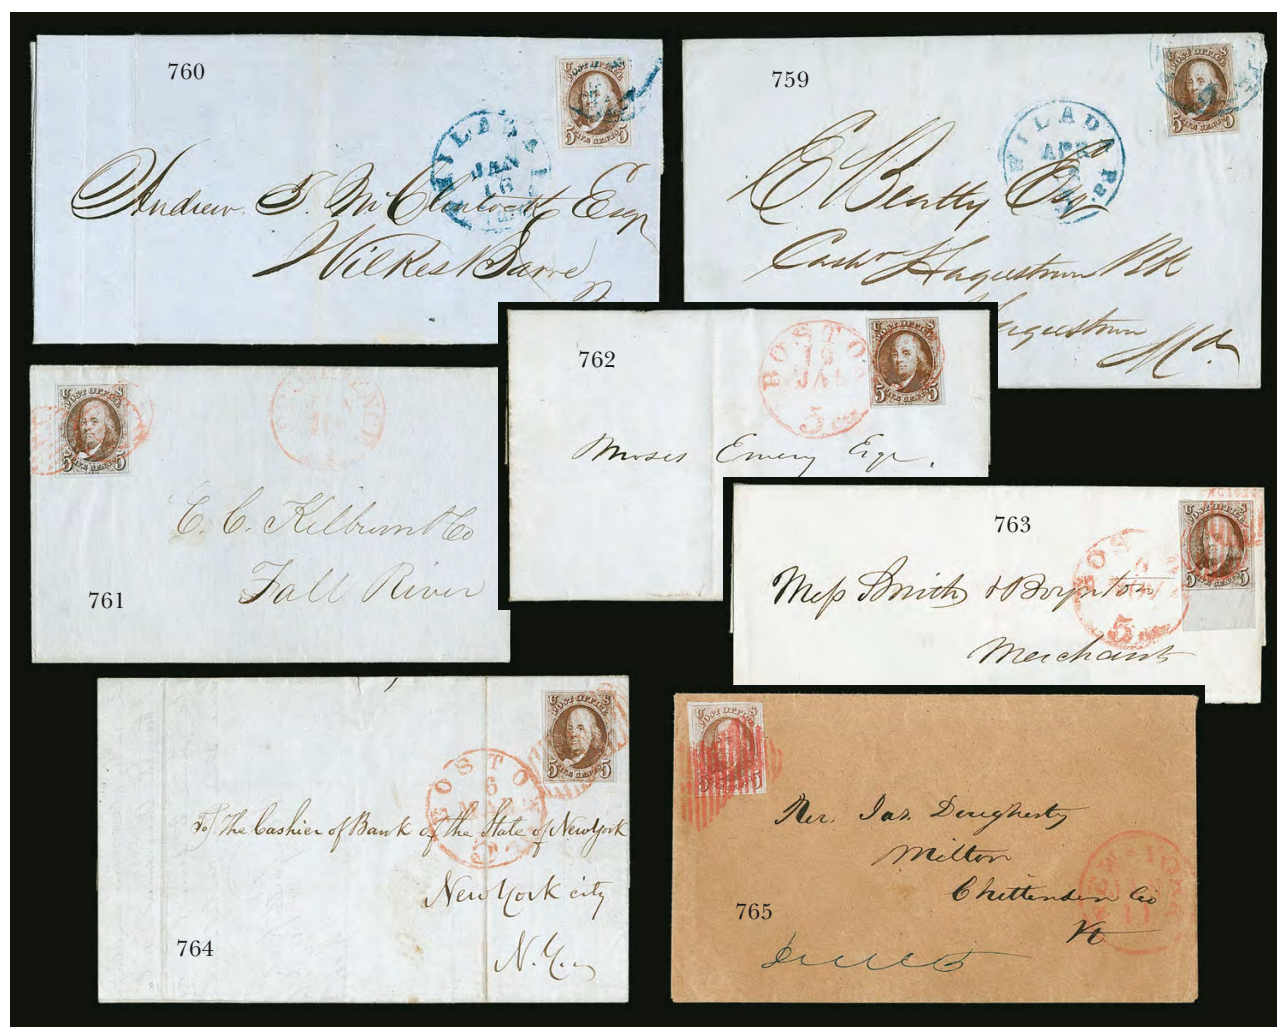 760
POST OFFICE
FIVE CENTS
5 5
PHILADA
JAN
16
Andrew T. McClintock Esq
Wilkes Barre
759
POST OFFICE
FIVE CENTS
5 5
PHILADA Pa.
APR
E. Beatty Esq
Cashr Hagerstown Bk
Hagerstown
Md.
762
BOSTON
18
JAN
5 cts
POST OFFICE
U S
FIVE CENTS
5 5
Moses Emery Esqr.
761
U S
POST OFFICE
FIVE CENTS
5 5
E. C. Kilburn & Co
Fall River
763
BOSTON
5 cts
U S
POST OFFICE
5 5
Mess Smith & Boynton
Merchants
764
U S
POST OFFICE
FIVE CENTS
5 5
BOSTON
6
To The Cashier of Bank of the State of New York
New York city
N.Y.
765
U S
POST OFFICE
5 5
NEW-YORK
11
Rev. Jas. Dougherty
Milton
Chittenden Co
Vt